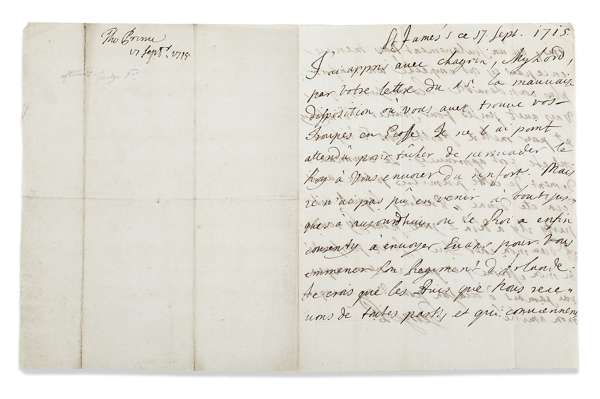 The Prince
17 Sept. 1715
St James's ce 17 Sept. 1715
J'ai appris avec chagrin, MyLord,
par votre lettre du la mauvaise
disposition où vous avez trouvé vos
troupes en Ecosse. Je n'ai point
attendu pour tâcher de persuader le
Roy à vous envoyer du renfort. Mais
je n'ai pas pû en venir à bout jus-
ques à aujourdhui, ou le Roi a enfin
consenty à envoyer Evans pour vous
emmener son Regiment d'Irlande.
Je crois que les Avis que Nous rece-
vons de toutes parts, et qui conviennent